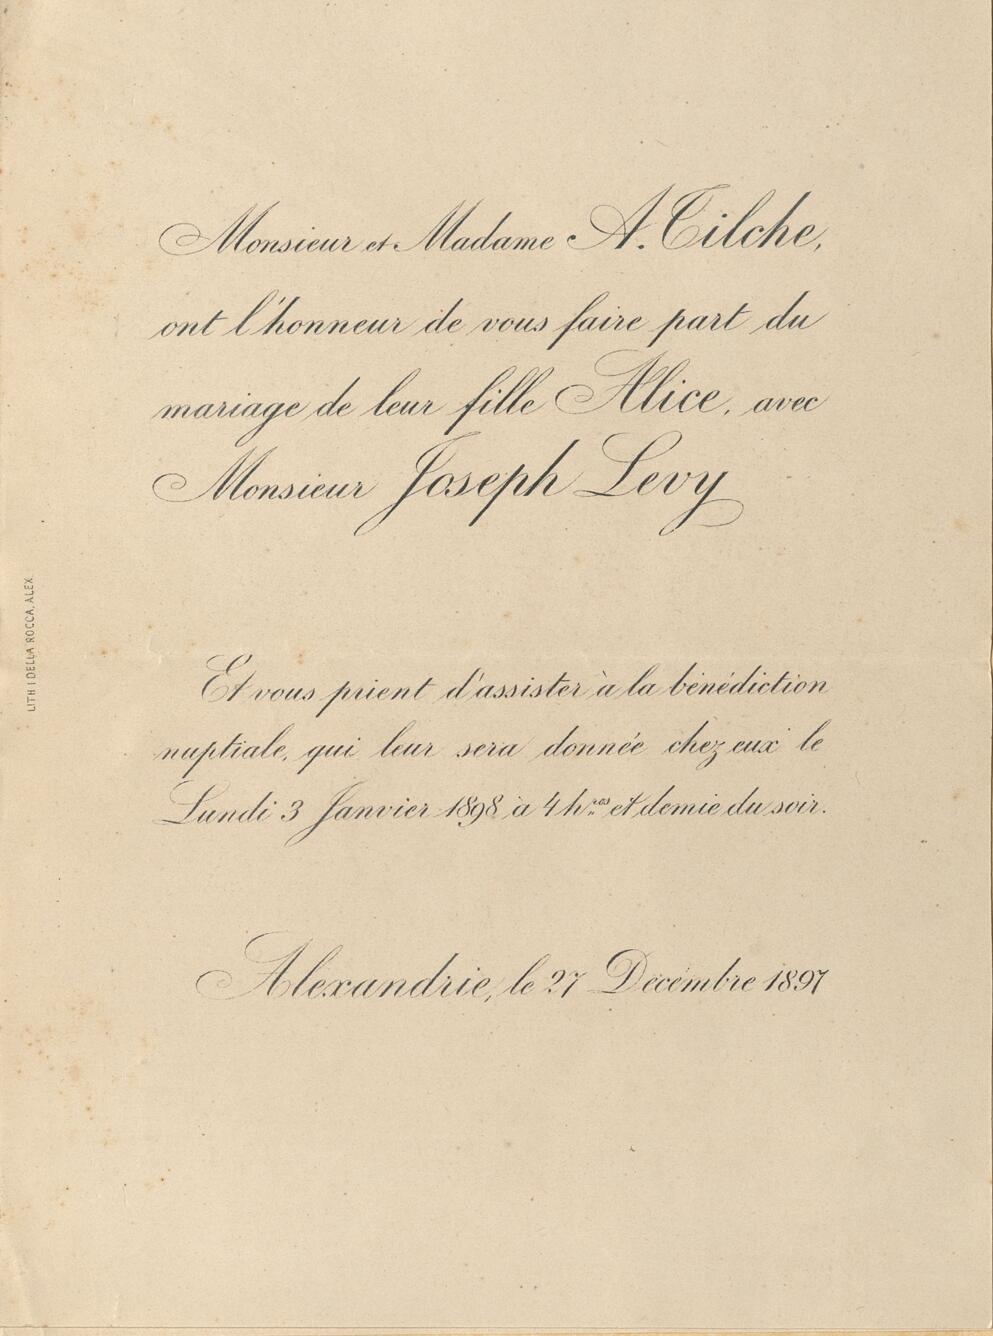 Monsieur et Madame A. Tilche,
ont l'honneur de vous faire part du
mariage de leur fille Alice, avec
Monsieur Joseph Levy
Et vous prient d'assister à la bénédiction
nuptiale, qui leur sera donnée chez eux le
Lundi 3 Janvier 1898 à 4 hres et demie du soir.
Alexandrie, le 27 Décembre 1897
LITH I DELLA ROCCA, ALEX.